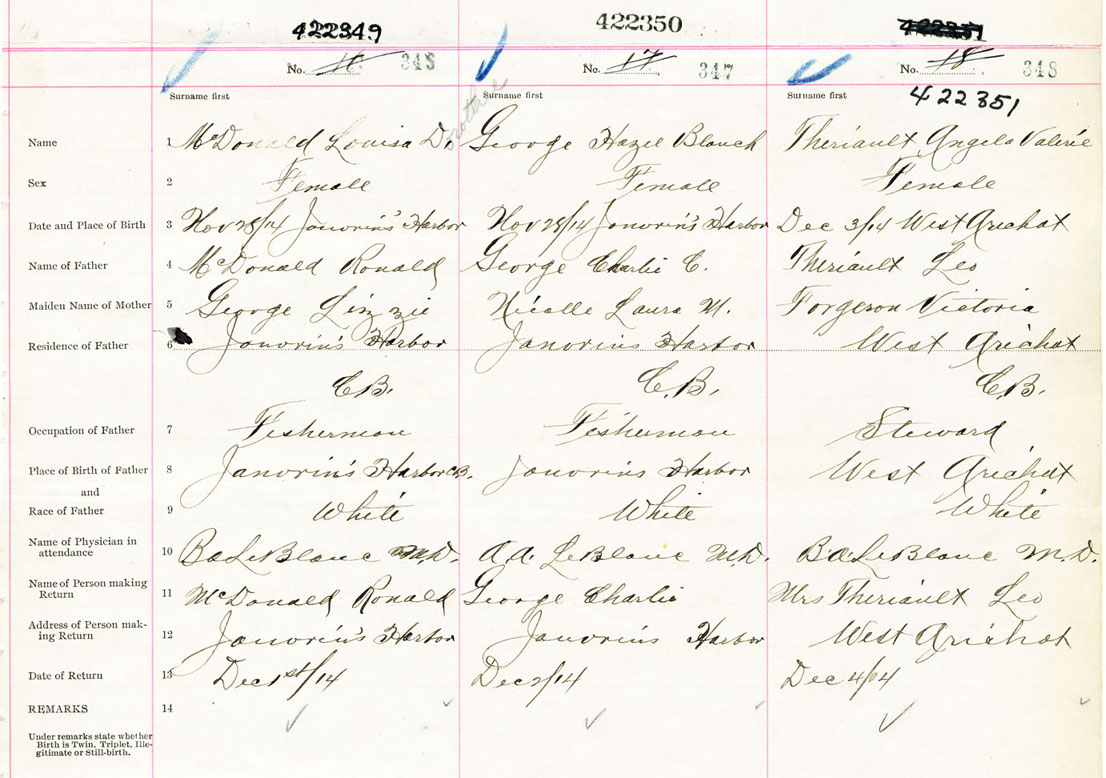 422349 422350 422351
No. 16 348 No. 17 347 No. 18 348
Surname first Surname first Surname first
422351
Name 1 McDonald Louisa D. George Hazel Blanch Theriault Angela Valerie
Sex 2 Female Female Female
Date and Place of Birth 3 Nov 28/14 Janvrin's Harbor Nov 28/14 Janvrin's Harbor Dec 3/14 West Arichat
Name of Father 4 McDonald Ronald George Charlie C. Theriault Leo
Maiden Name of Mother 5 George Lizzie Nicolle Laura M. Forgeron Victoria
Residence of Father 6 Janvrins Harbor Janvrins Harbor West Arichat
C.B. C.B. C.B.
Occupation of Father 7 Fisherman Fisherman Steward
Place of Birth of Father 8 Janvrin's Harbor C.B. Janvrins Harbor West Arichat
and
Race of Father 9 White White White
Name of Physician in
attendance 10 B.A. LeBlanc M.D. A.A. LeBlanc M.D. B.A. LeBlanc M.D.
Name of Person making
Return 11 McDonald Ronald George Charlie Mrs Theriault Leo
Address of Person mak-
ing Return 12 Janvrin's Harbor Janvrins Harbor West Arichat
Date of Return 13 Dec 1st/14 Dec 2/14 Dec 4/14
REMARKS 14
Under remarks state whether
Birth is Twin, Triplet, Ille-
gitimate or Still-birth.